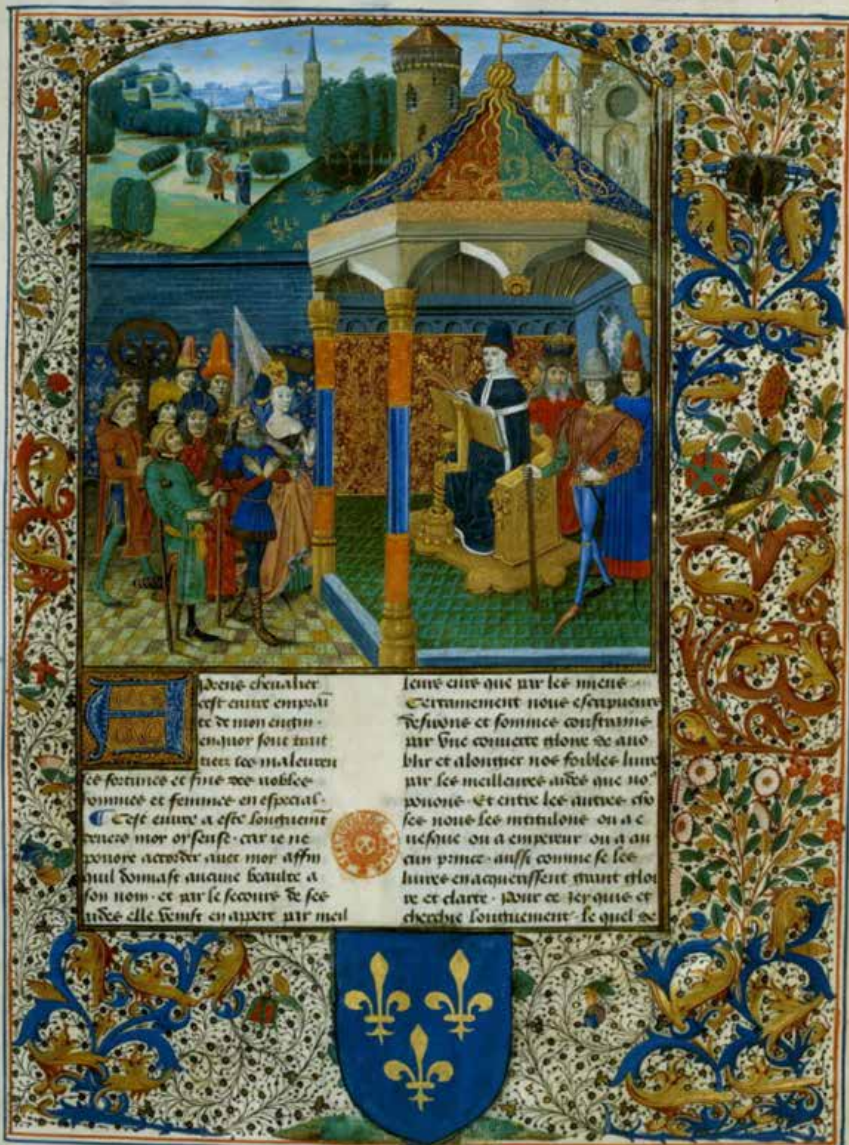 Ardens chevalier
cest euure emprain
te de mon engin ·
enquor sont trait
tiers les maleureu
ses fortunes et fins des nobles
hommes et femmes en especial ·
Cest euure a este longuemt
deuers moy oyseuse · car ie ne
pouoie accorder auec moy affin
quil donnast aucune beaulte a
son nom · et par le secours de ses
aides elle venist en appert par meil
leurs eurs que par les miens
Certainement nous escripueurs
desirons et sommes constrains
par vne couuerte gloire de ano
blir et alongier nos foibles liures
par les meilleures aides que nous
pouons · Et entre les autres cho
ses nous les intitulons ou a e
uesque ou a empereur ou a au
cun prince · aussi comme se les
liures en acquerissent grant gloi
re et clarte · Pour ce iey quis et
cherchie longuement · le quel de